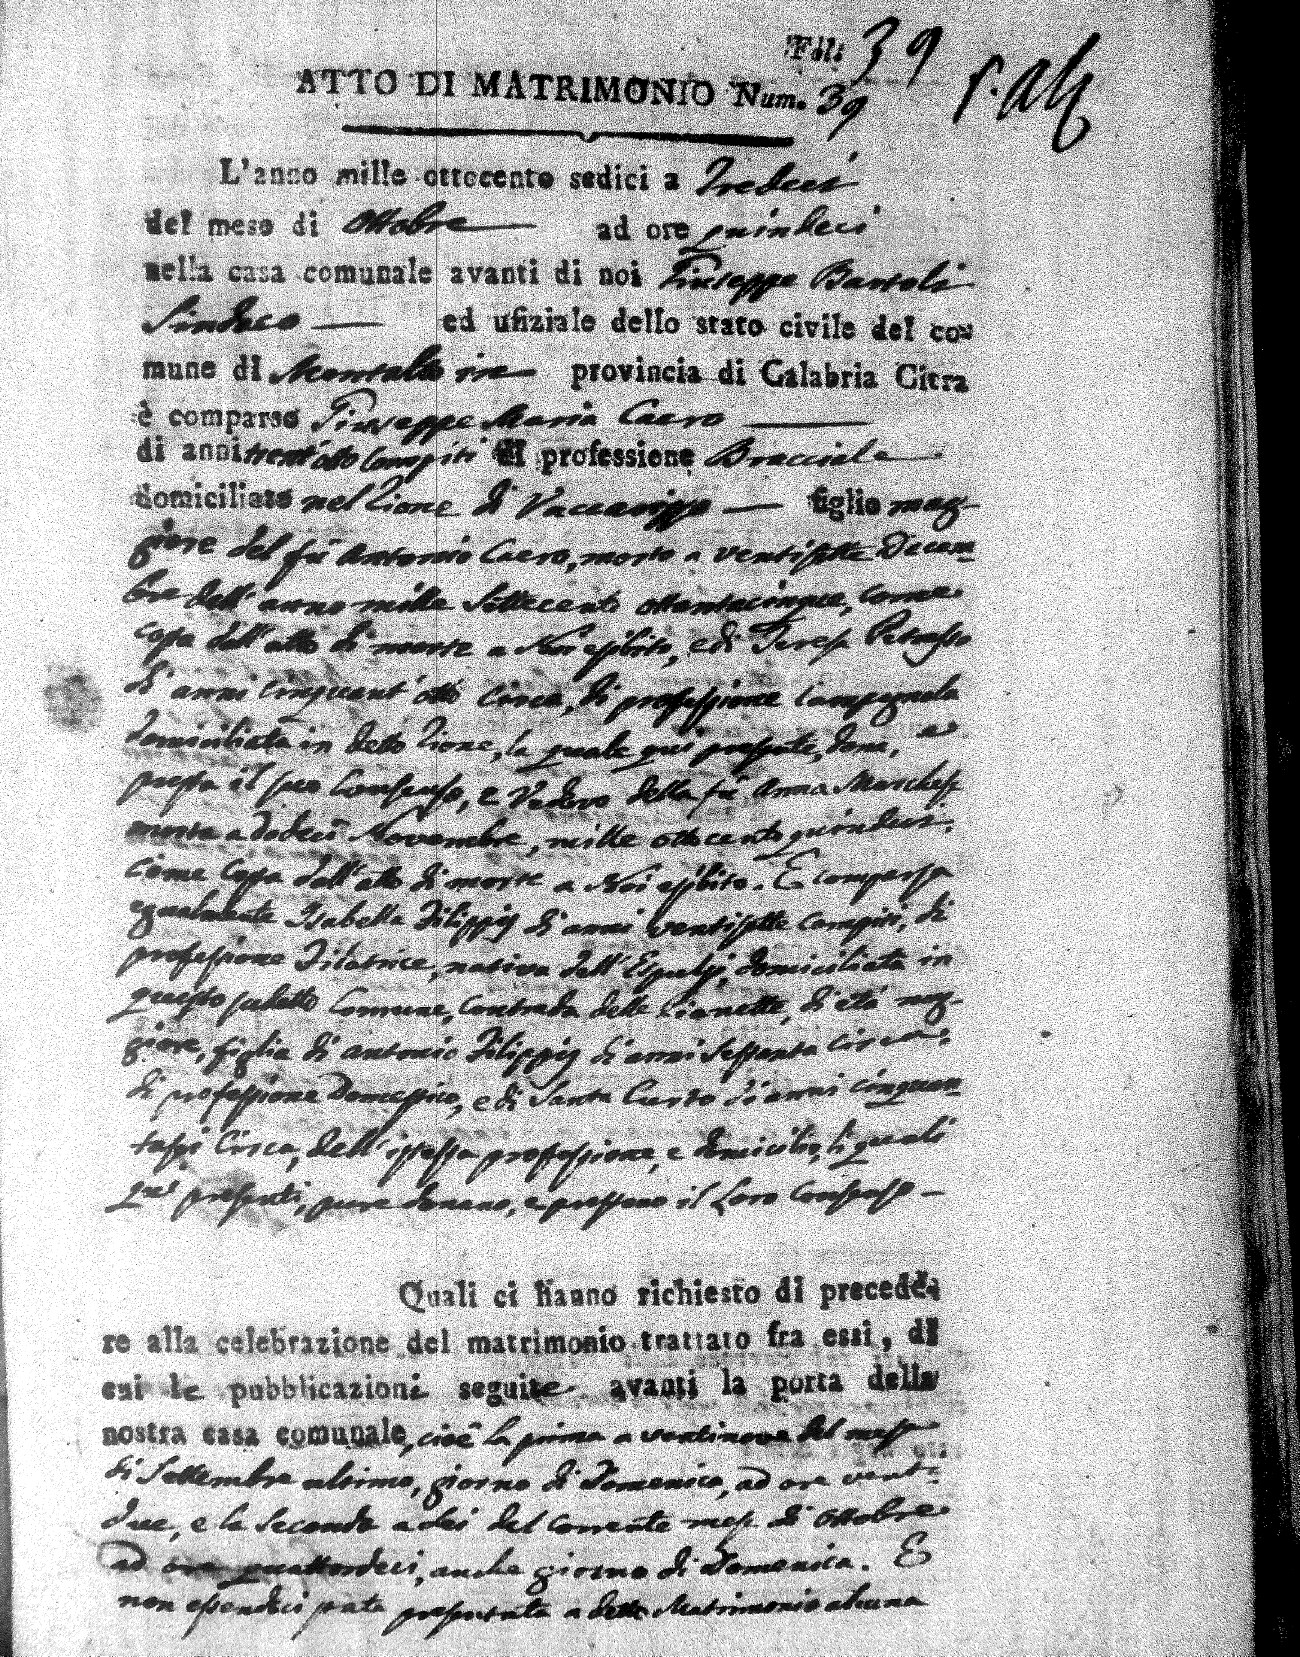 Fol: 39
ATTO DI MATRIMONIO Num. 39
L'anno mille ottocento sedici a Tredeci
del mese di Ottobre ad ore quindeci
nella casa comunale avanti di noi Giuseppe Bartoli
Sindeco ed ufiziale dello stato civile del co=
mune di Montalto in provincia di Calabria Citra
è comparso Giuseppe Maria Caero
di anni trent'otto compiti di professione Bracciale
domiciliato nel Rione di Vaccarizzo figlio mag-
giore del fù Antonio Caero, morto a ventisette Decem=
bre dell'anno mille settecento ottantacinque, come
copia dell'atto di morte a Noi esibito, e di Teresa Petrasso
di anni cinquant'otto circa, di professione Campagnola
domiciliata in detto Rione, la quale quì presente, dona, e
presta il suo consenso, e Vedovo della fù Anna Marchese
morta a dodeci Novembre, mille ottocento quindeci,
come copia dell'atto di morte a Noi esibito. E comparsa
egualmente Isabella Filippis di anni ventisette compiti, di
professione Filatrice, nativa dell' domiciliata in
questo sudetto Comune, contrada delle di età mag-
giore, figlia di Antonio Filippis di anni sessanta circa,
di professione Domestico, e di Santa Curto di anni cinquan=
tasei circa, dell'istessa professione, e domicilio, li quali
quì presenti, pure donano, e prestano il loro consenso
Quali ci hanno richiesto di precede
re alla celebrazione del matrimonio trattato fra essi, di
cui le pubblicazioni seguite avanti la porta della
nostra casa comunale, cioè la prima a ventinove del mese
di Settembre ultimo, giorno di Domenica, ad ore venti=
due, e la seconda a sei del corrente mese di Ottobre
ad ore quattordeci, anche giorno di Domenica. E
non essendoci stata presentata a detto Matrimonio alcuna